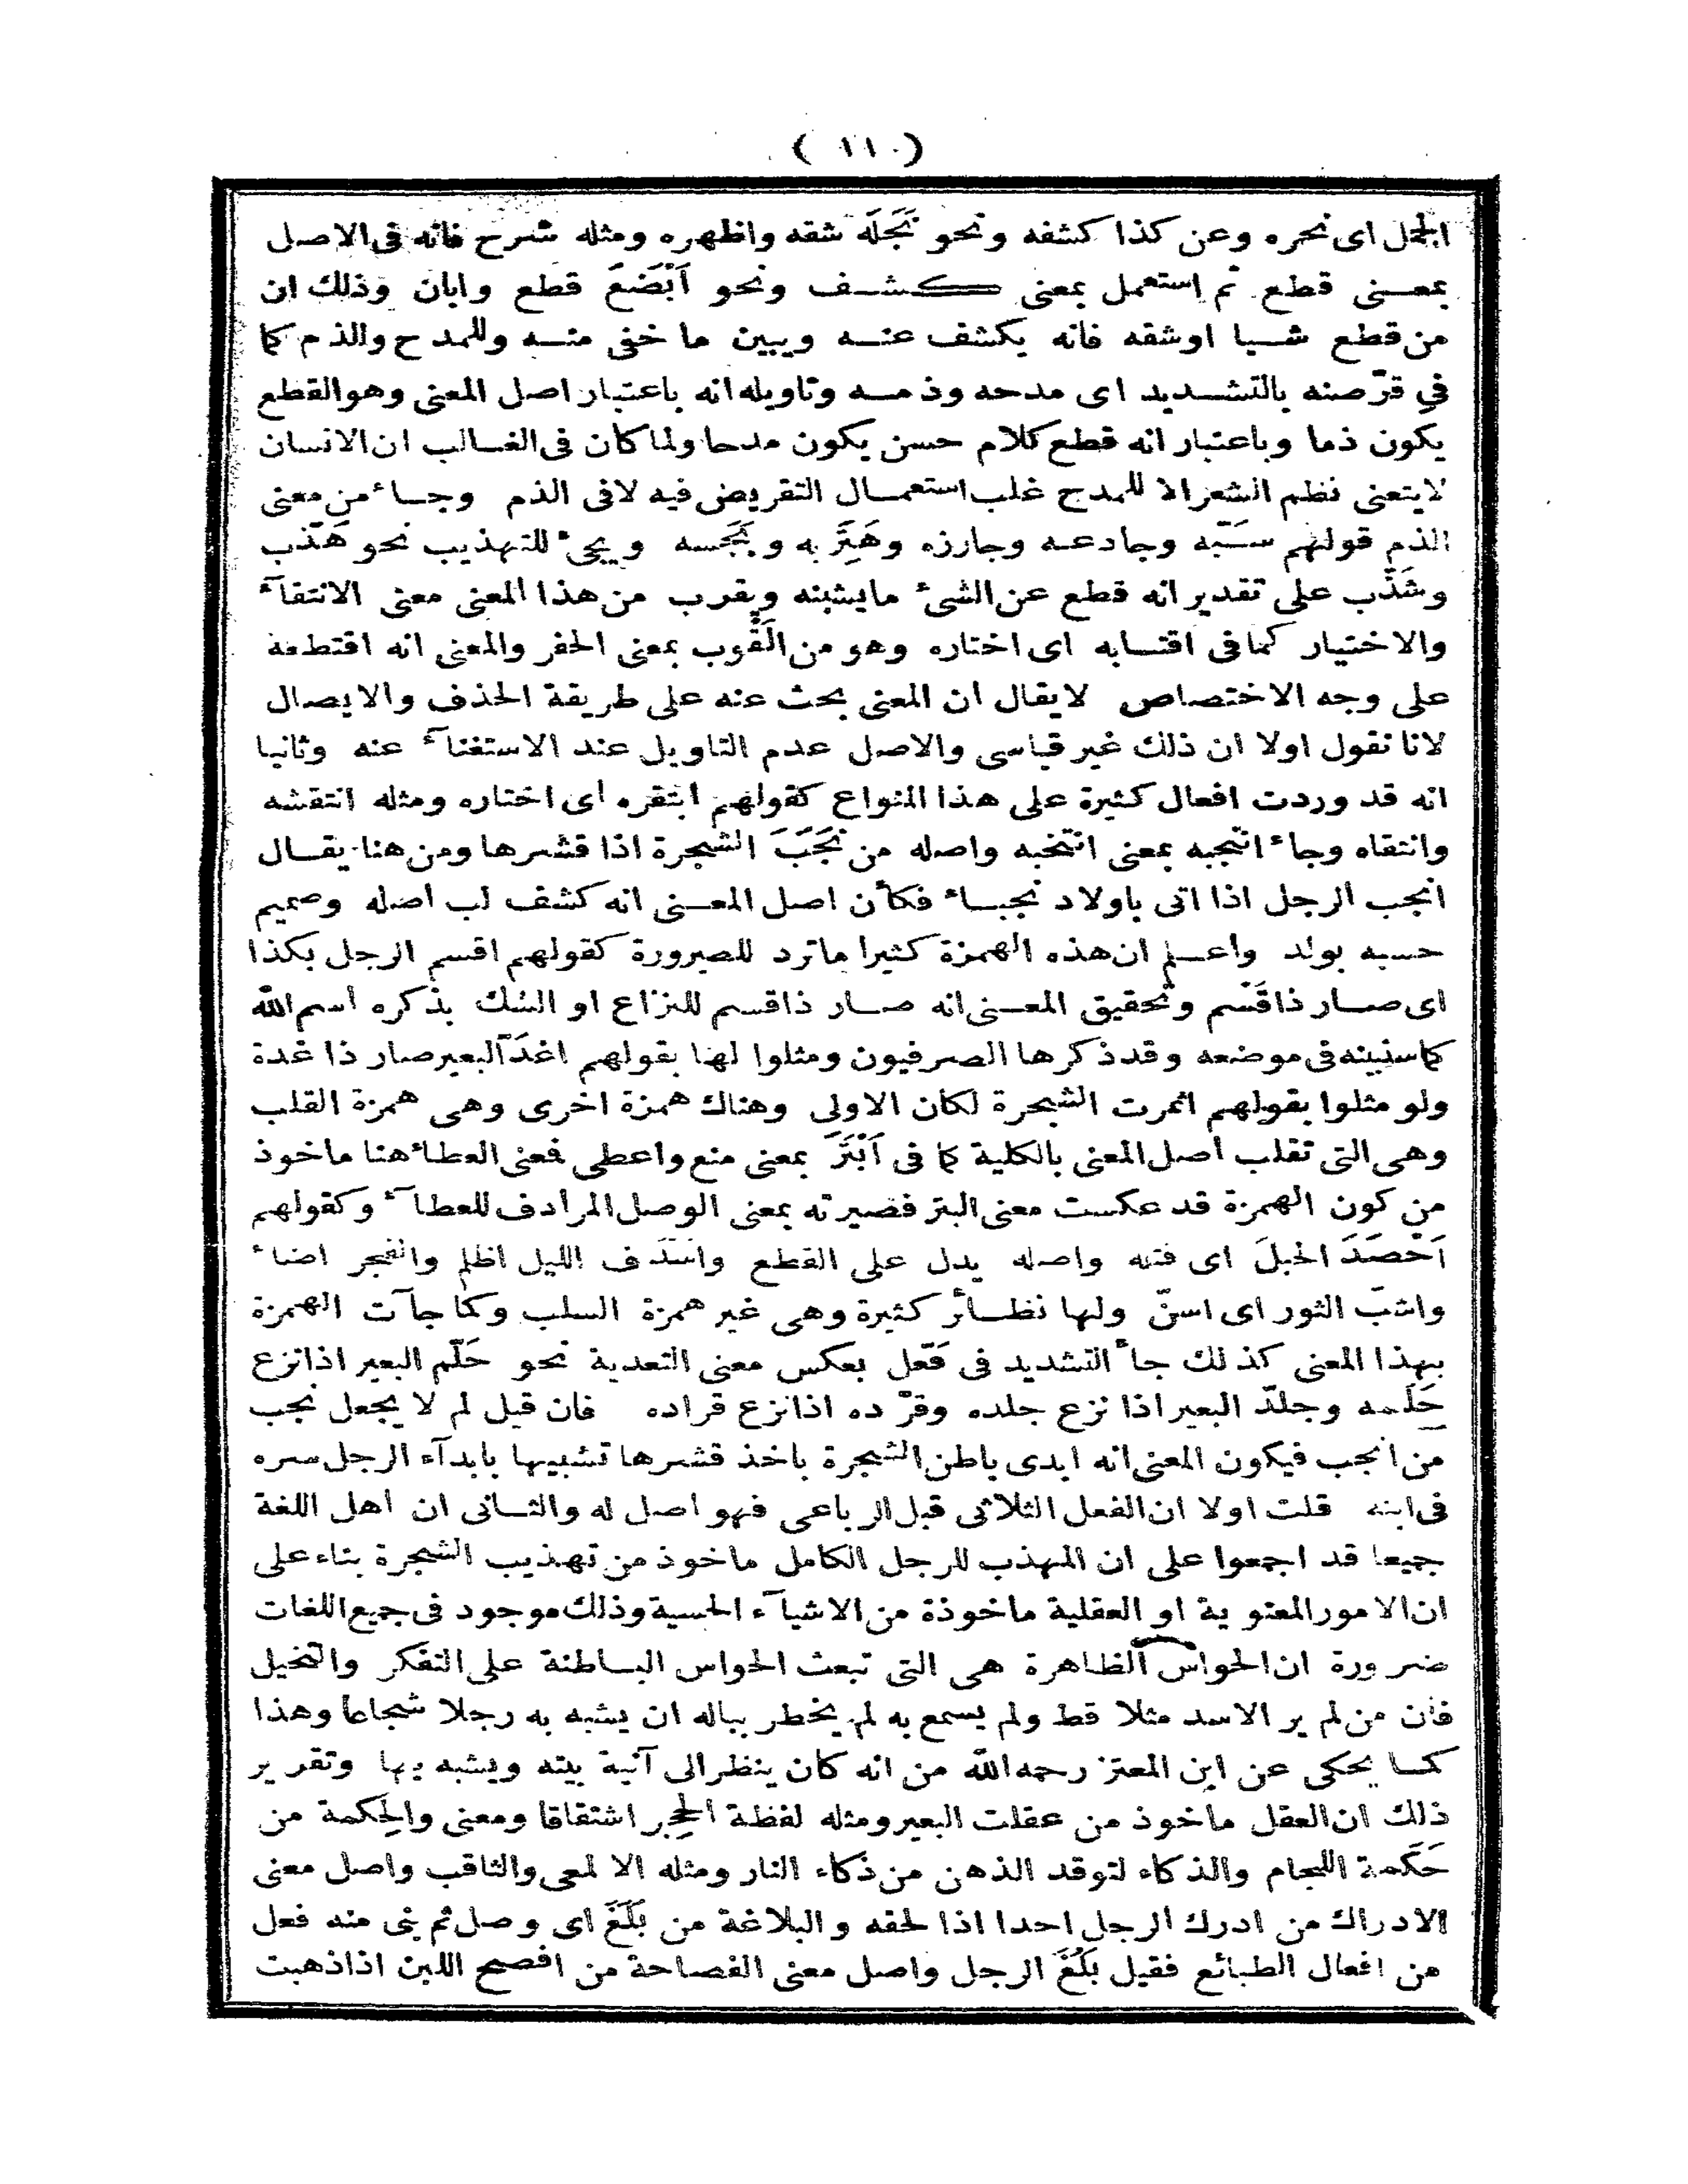 ( ١١٠ )
الجمل اى نحره وعن كذا كشفه ونحو نَجَلَه شقه واظهره ومثله شرح فانه فى الاصل
بمعنى قطع ثم استعمل بمعنى كشف ونحو اَبْضَعَ قطع وابان وذلك ان
من قطع شيا اوشقه فانه يكشف عنه ويبين ما خفى منه وللمدح والذم كما
فى قرّصنه بالتشديد اى مدحه وذمه وتاويله انه باعتبار اصل المعنى وهو القطع
يكون ذما وباعتبار انه قطع كلام حسن يكون مدحا ولما كان فى الغالب ان الانسان
لايتعنى نظم الشعر الا للمدح غلب استعمال التقريض فيه لافى الذم وجاء من معنى
الذم قولهم سَبَّه وجادعه وجارزه وهَتَر به و ويجئ للتهذيب نحو هَذَّب
وشَذَّب على تقدير انه قطع عن الشئ مايشينه ويقرب من هذا المعنى معنى الانتقآء
والاختيار كما فى اقتابه اى اختاره وهو من القَوب بمعنى الحفر والمعنى انه اقتطعه
على وجه الاختصاص لايقال ان المعنى بحث عنه على طريقة الحذف والايصال
لانا نقول اولا ان ذلك غير قياسى والاصل عدم التاويل عند الاستغنآء عنه وثانيا
انه قد وردت افعال كثيرة على هذا النواع كقولهم ابتقره اى اختاره ومثله انتقشه
وانتقاه وجاء انتجبه بمعنى انتخبه واصله من نَجَبَ الشجرة اذا قشرها ومن هنا يقال
انجب الرجل اذا اتى باولاد نجباء فكأن اصل المعنى انه كشف لب اصله وصميم
حسبه بولد واعلم ان هذه الهمزة كثيرا ماترد للصيرورة كقولهم اقسم الرجل بكذا
اى صار ذاقَسَم وتحقيق المعنى انه صار ذاقسم للنزاع او الشك بذكره اسم الله
كماسنبينه فى موضعه وقد ذكرها الصرفيون ومثلوا لها بقولهم اغدّ البعير صار ذا غدة
ولو مثلوا بقولهم اثمرت الشجرة لكان الاولى وهناك همزة اخرى وهى همزة القلب
وهى التى تقلب اصل المعنى بالكلية كما فى اَبْتَرَ بمعنى منع واعطى فعنى العطاء هنا ماخوذ
من كون الهمزة قد عكست معنى البتر فصيرته بمعنى الوصل المرادف للعطآء وكقولهم
اَحْصَدَ الحبلَ اى فتله واصله يدل على القطع واسدف الليل اظلم والفجر اضاء
واشبّ الثور اى اسنّ ولها نظائر كثيرة وهى غير همزة السلب وكما جآت الهمزة
بهذا المعنى كذلك جاء التشديد فى فَعّل بعكس معنى التعدية نحو حَلّم البعير اذا نزع
حَلَمه وجلّد البعير اذا نزع جلده وقرّده اذا نزع قراده فان قيل لم لا يجعل نجب
من انجب فيكون المعنى انه ابدى باطن الشجرة باخذ قشرها تشبيها بابدآء الرجل سره
فى ابنه قلت اولا ان الفعل الثلاثى قبل الرباعى فهو اصل له والثانى ان اهل اللغة
جميعا قد اجمعوا على ان المهذب للرجل الكامل ماخوذ من تهذيب الشجرة بناء على
ان الامور المعنوية او العقلية ماخوذة من الاشيآء الحسية وذلك موجود فى جميع اللغات
ضرورة ان الحواس الظاهرة هى التى تبعث الحواس الباطنة على التفكر والتخيل
فان من لم ير الاسد مثلا قط ولم يسمع به لم يخطر بباله ان يشبه به رجلا شجاعا وهذا
كما يحكى عن ابن المعتز رحمه الله من انه كان ينظر الى آنية بيته ويشبه بها وتقرير
ذلك ان العقل ماخوذ من عقلت البعير ومثله لفظة الحِجر اشتقاقا ومعنى والحِكمة من
حَكَمة اللجام والذكاء لتوقد الذهن من ذكاء النار ومثله الالمعى والثاقب واصل معنى
الادراك من ادرك الرجل احدا اذا لحقه والبلاغة من بَلَغَ اى وصل ثم بنى منه فعل
من افعال الطبائع فقيل بَلُغَ الرجل واصل معنى الفصاحة من افصح اللبن اذاذهبت